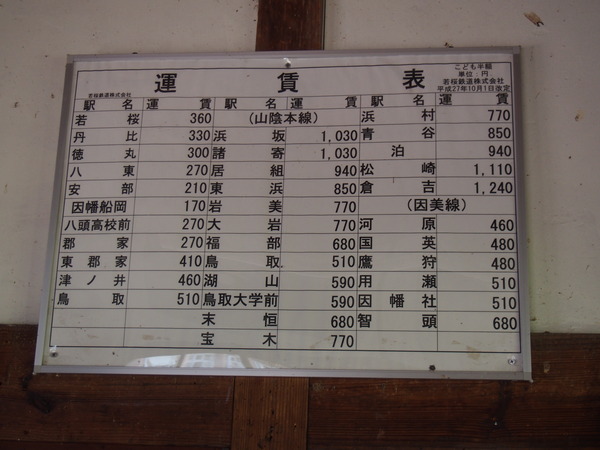 運賃表
若桜鉄道株式会社
こども半額
単位:円
若桜鉄道株式会社
平成27年10月1日改定
駅名 運賃 駅名 運賃 駅名 運賃
若桜 360 (山陰本線) 浜村 770
丹比 330 浜坂 1,030 青谷 850
徳丸 300 諸寄 1,030 泊 940
八東 270 居組 940 松崎 1,110
安部 210 東浜 850 倉吉 1,240
因幡船岡 170 岩美 770 (因美線)
八頭高校前 270 大岩 770 河原 460
郡家 270 福部 680 国英 480
東郡家 410 鳥取 510 鷹狩 480
津ノ井 460 湖山 590 用瀬 510
鳥取 510 鳥取大学前 590 因幡社 510
末恒 680 智頭 680
宝木 770